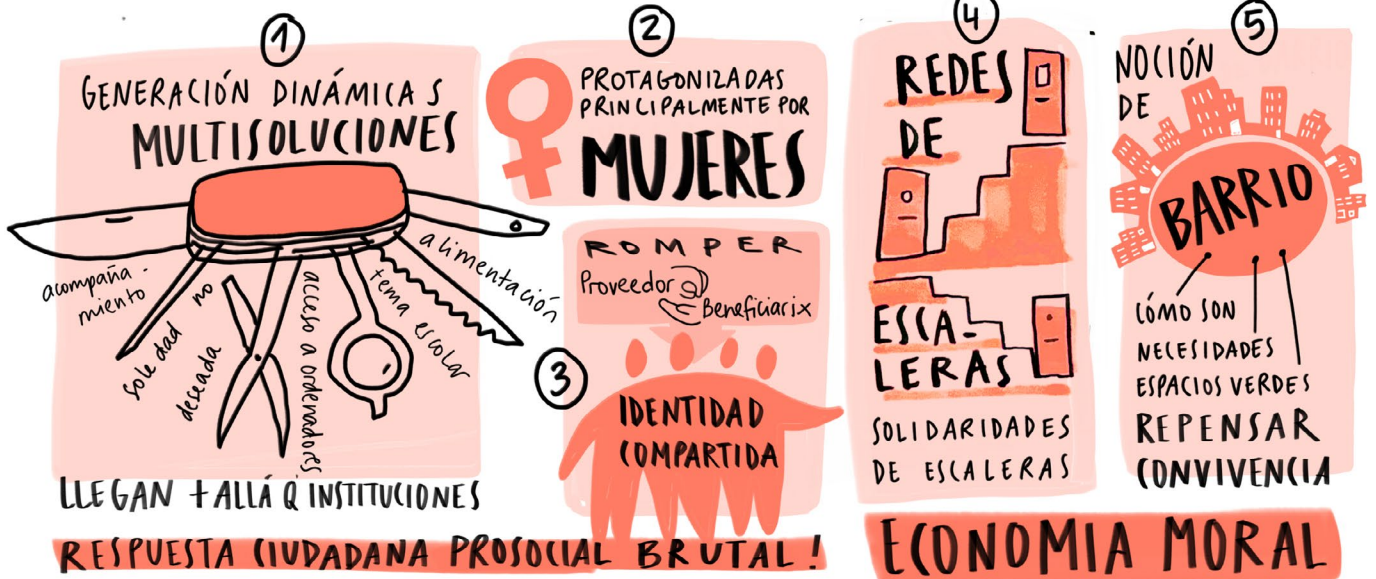 1
GENERACIÓN DINÁMICAS
MULTISOLUCIONES
acompaña-
miento
soledad no
deseada
acceso a ordenadores
tema escolar
alimentación
LLEGAN + ALLÁ Q' INSTITUCIONES
2
PROTAGONIZADAS
PRINCIPALMENTE POR
MUJERES
3
ROMPER
Proveedor
Beneficiarix
IDENTIDAD
COMPARTIDA
RESPUESTA CIUDADANA PROSOCIAL BRUTAL!
4
REDES
DE
ESCA-
LERAS
SOLIDARIDADES
DE ESCALERAS
5
NOCIÓN
DE
BARRIO
CÓMO SON
NECESIDADES
ESPACIOS VERDES
REPENSAR
CONVIVENCIA
ECONOMIA MORAL